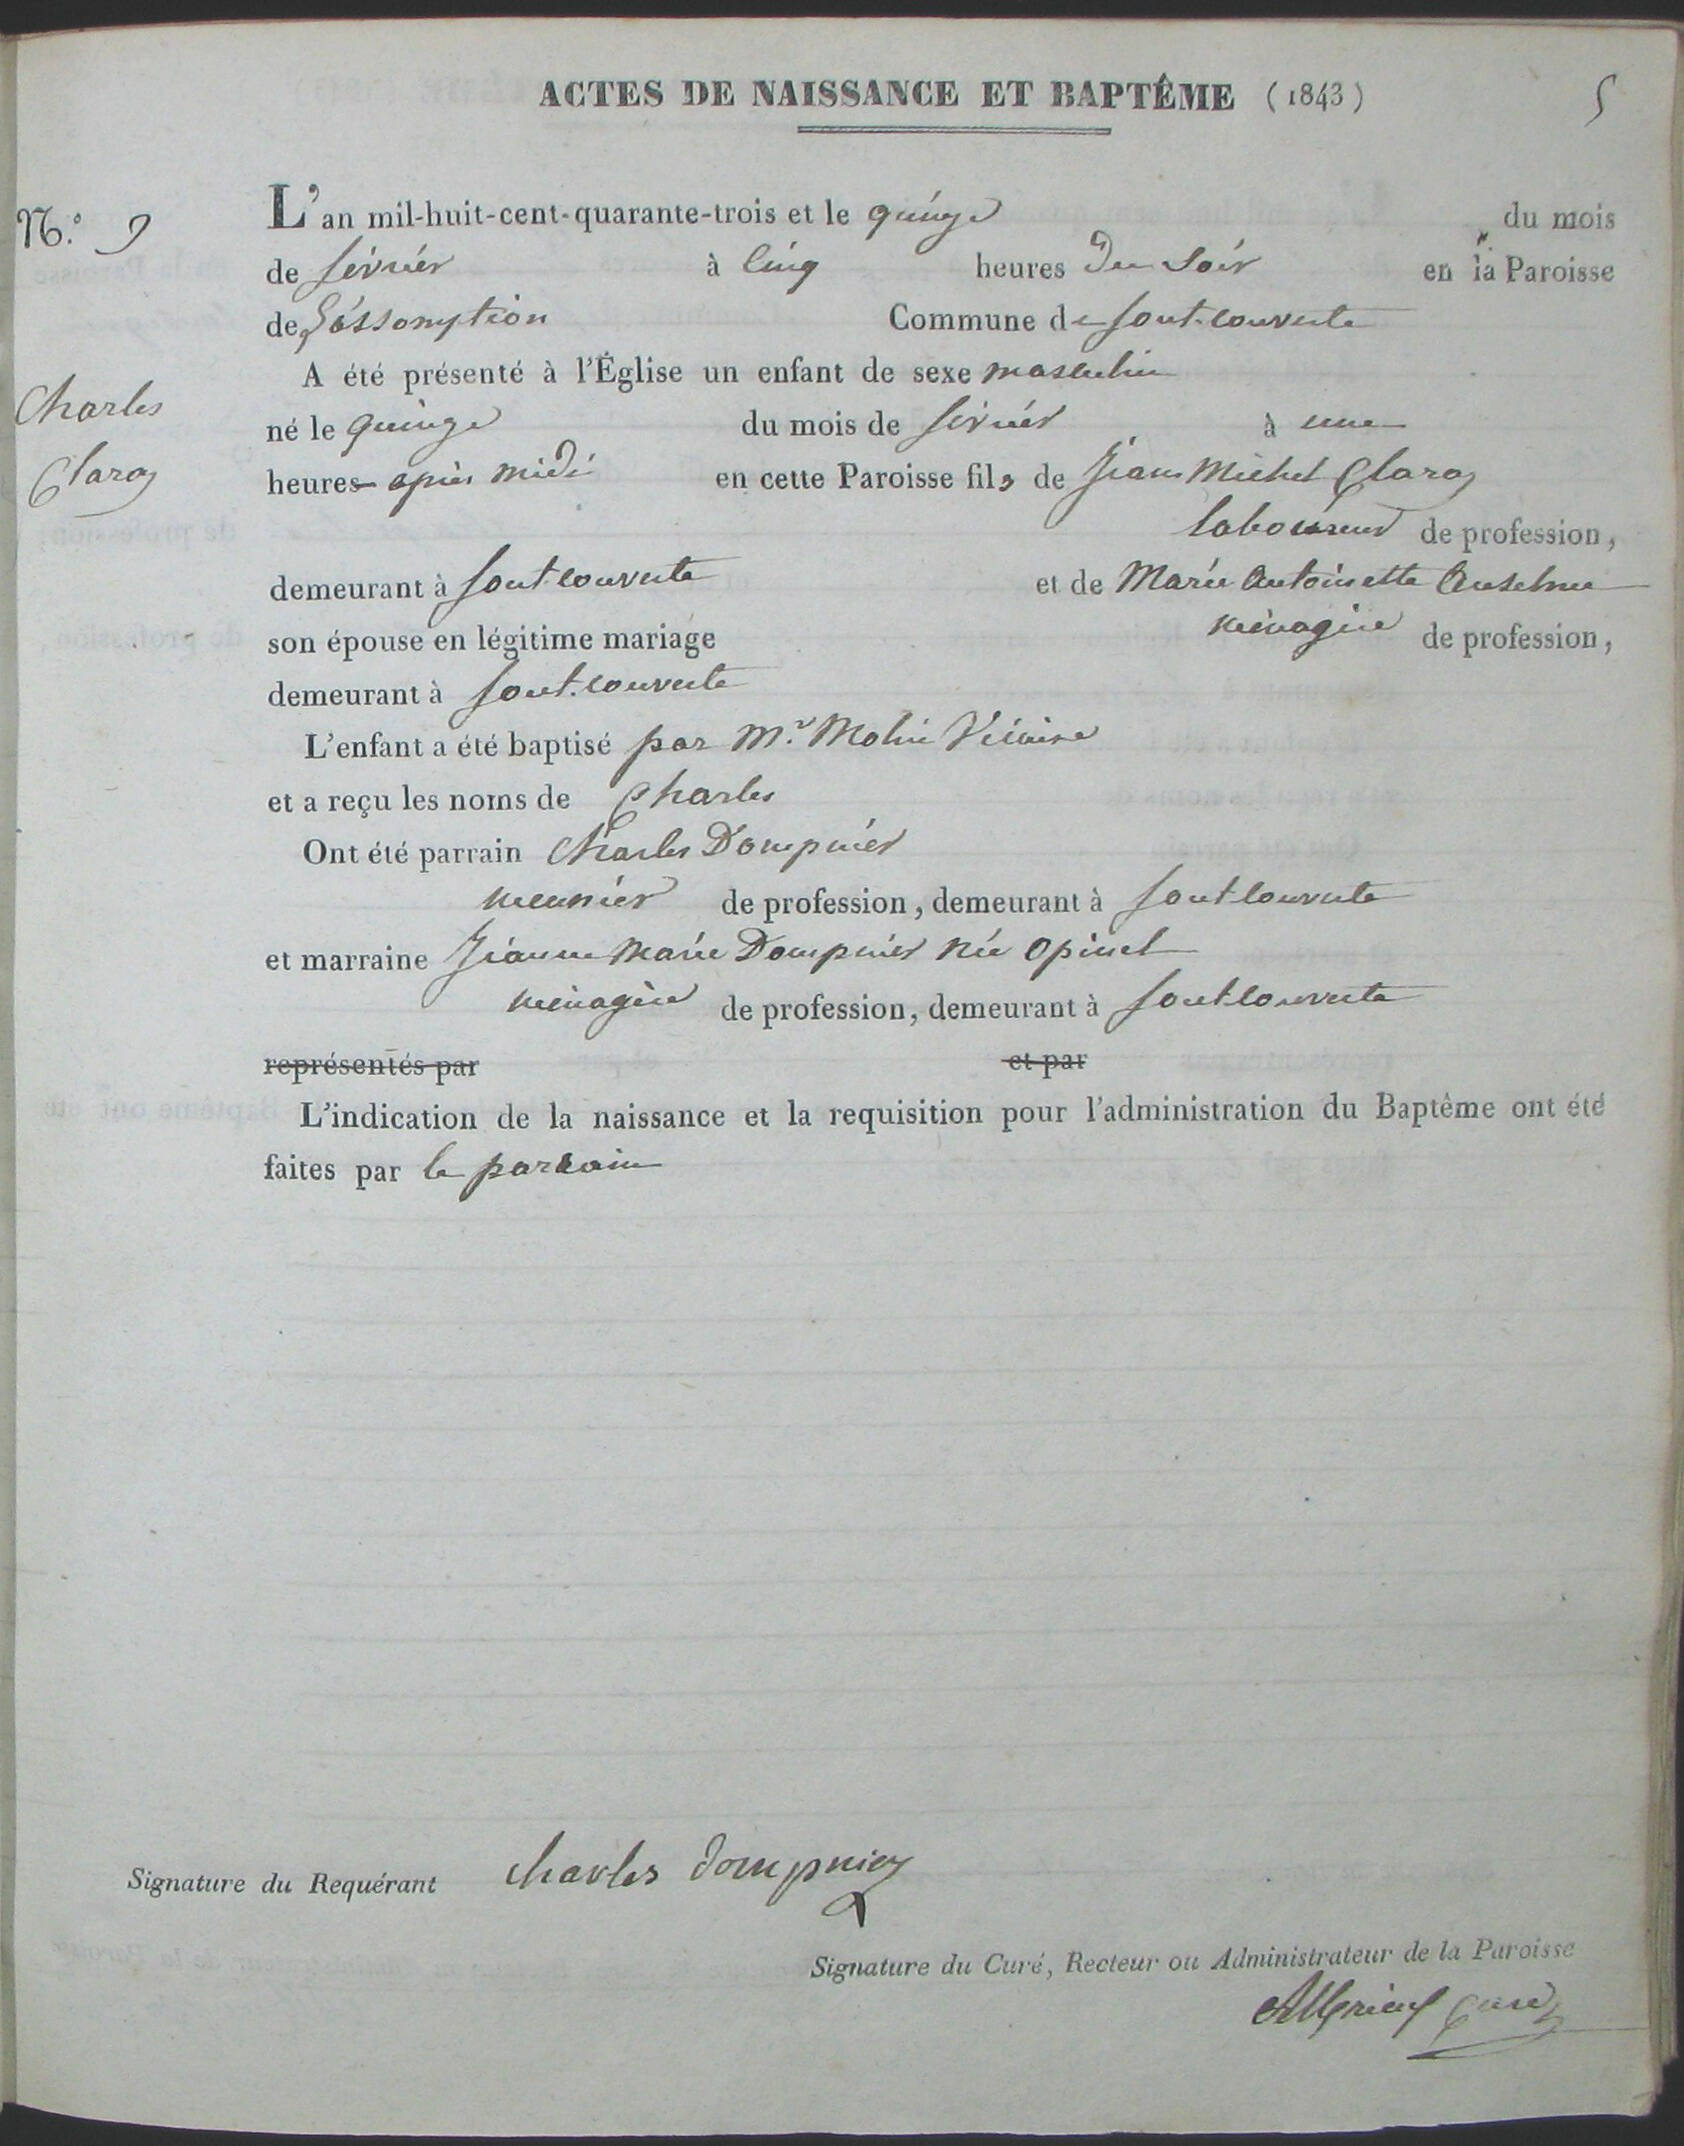 ACTES DE NAISSANCE ET BAPTÊME (1843)
5
N.° 9
L'an mil-huit-cent-quarante-trois et le quinze du mois
de février à cinq heures du soir en la Paroisse
de l'assomption Commune de fontcouverte
A été présenté à l'Église un enfant de sexe masculin
Charles
Claraz
né le quinze du mois de février à une
heures après midi en cette Paroisse fils de Jean Michel Claraz
laboureur de profession,
demeurant à fontcouverte et de Marie Antoinette Anselme
son épouse en légitime mariage ménagère de profession,
demeurant à font.couverte
L'enfant a été baptisé par Mr. Molin Vicaire
et a reçu les noms de Charles
Ont été parrain Charles Dompnier
meunier de profession, demeurant à fontcouverte
et marraine Jeanne Marie Dompnier née Opinel
ménagère de profession, demeurant à fontcouverte
représentés par et par
L'indication de la naissance et la requisition pour l'administration du Baptême ont été
faites par le parrain
Signature du Requérant charles dompnier
Signature du Curé, Recteur ou Administrateur de la Paroisse
curé